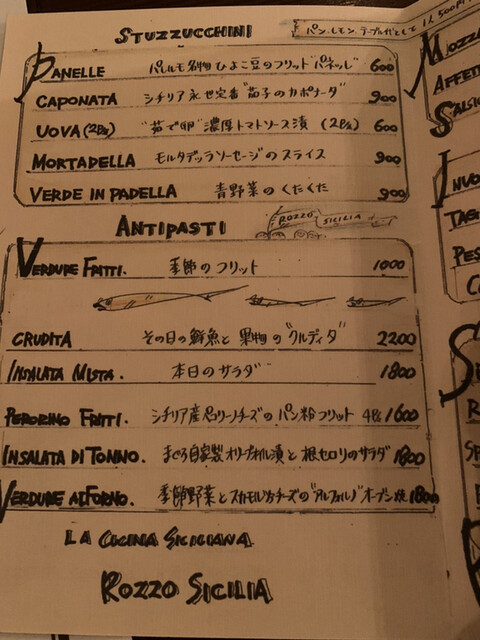 STUZZUCCHINI
パン、レモン、テーブルチャージとして 1人500円
PANELLE パレルモ名物 ひよこ豆のフリット"パネッレ" 600
CAPONATA シチリア永世定番"茄子のカポナータ" 900
UOVA (2P㌔) "茹で卵"濃厚トマトソース漬 (2P㌔) 600
MORTADELLA モルタデッラソーセージのスライス 900
VERDE IN PADELLA 青野菜のくたくた 900
ANTIPASTI
ROZZO SICILIA
VERDURE FRITTI. 季節のフリット 1000
CRUDITA その日の鮮魚と果物の"クルディタ" 2200
INSALATA MISTA. 本日のサラダ 1800
PERORINO FRITTI. シチリア産ペコリーノチーズのパン粉フリット 4P 1600
INSALATA DI TONNO. まぐろ自家製オリーブオイル漬と根セロリのサラダ 1800
VERDURE AL FORNO. 季節野菜とスカモルツァチーズの"アルフォルノ"オーブン焼 1800
LA CUCINA SICILIANA
ROZZO SICILIA
MOZZ
AFFETT
SALSIC
INVO
TAG
PES